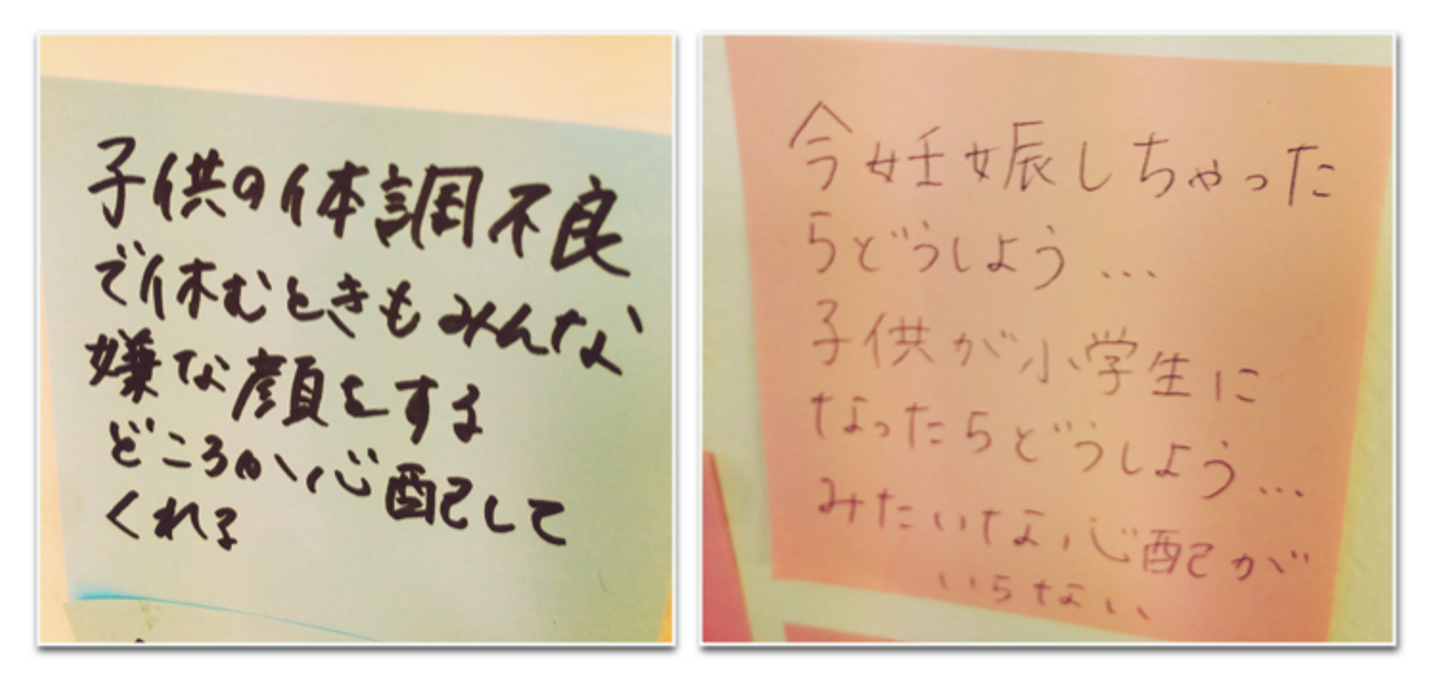 子供の体調不良
で休むときもみんな
嫌な顔をする
どころか心配して
くれる
今妊娠しちゃった
らどうしよう…
子供が小学生に
なったらどうしよう…
みたいな心配が
いらない